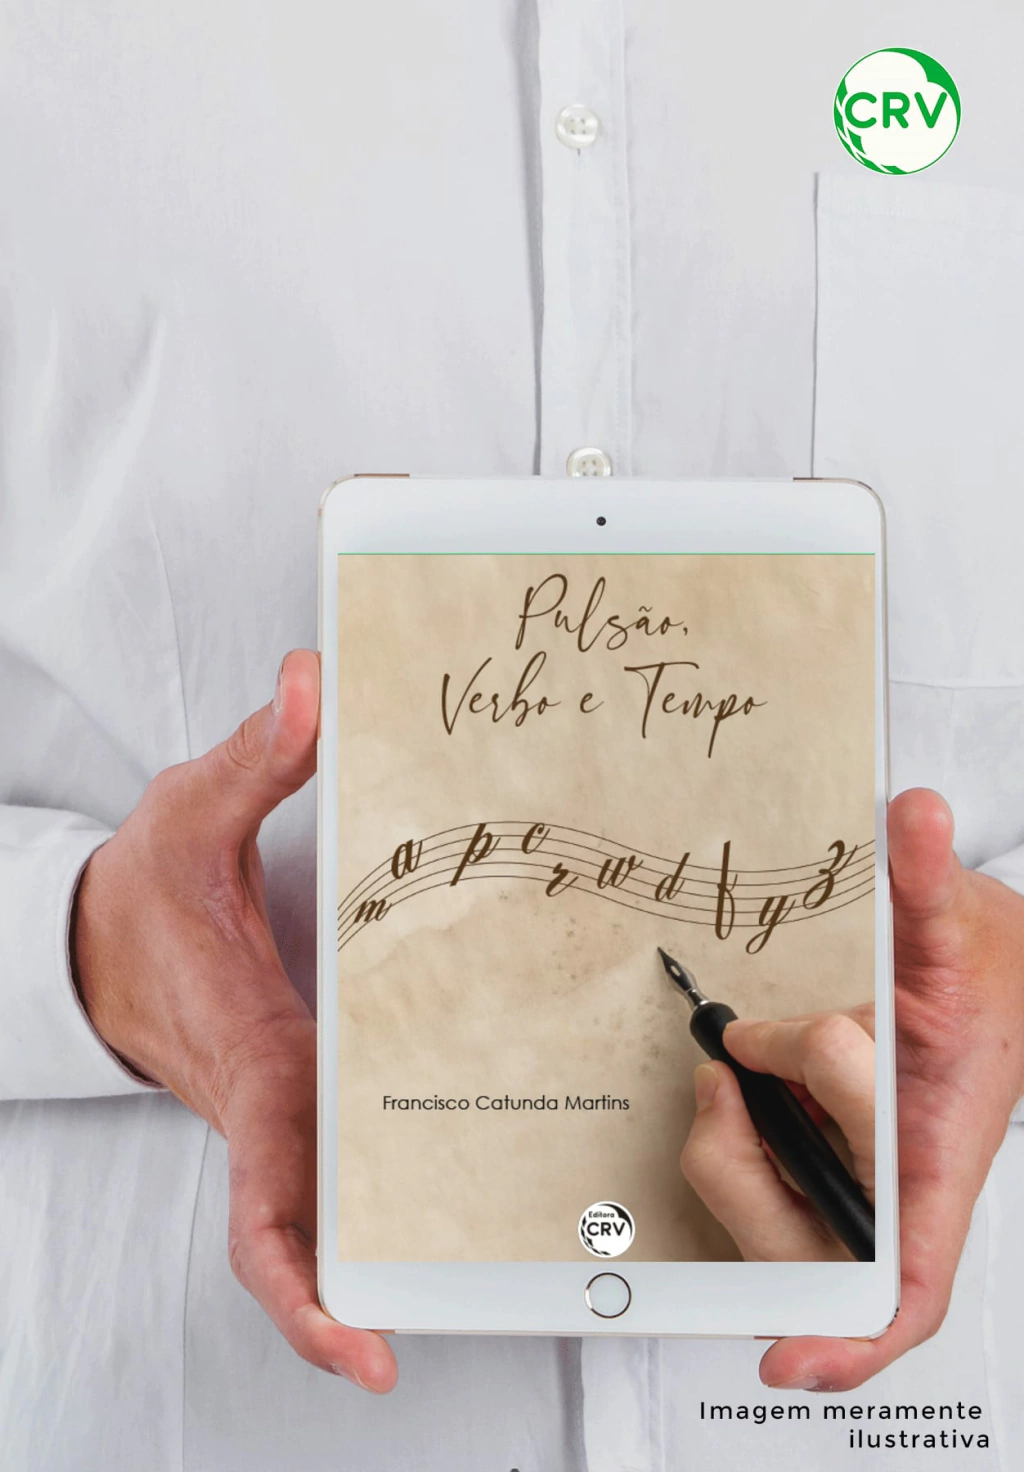 CRV
Pulsão,
Verbo e Tempo
m a p c r w d f y z
Francisco Catunda Martins
Editora
CRV
Imagem meramente
ilustrativa